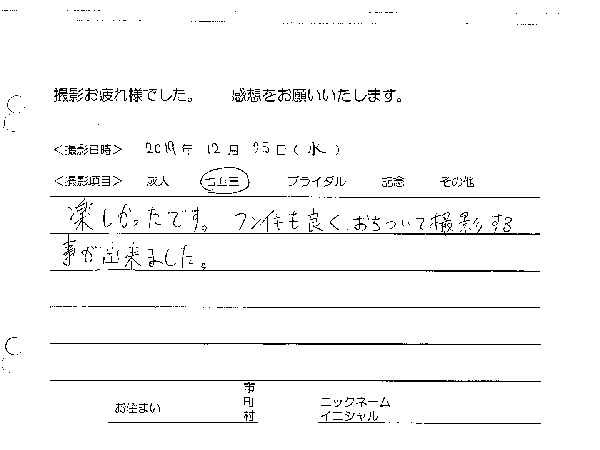 撮影お疲れ様でした。 感想をお願いいたします。
<撮影日時> 2019年 12月 25日(水)
<撮影項目> 成人 七五三 ブライダル 記念 その他
楽しかったです。フンイキも良く、おちついて撮影する
事が出来ました。
お住まい 市町村 ニックネーム イニシャル